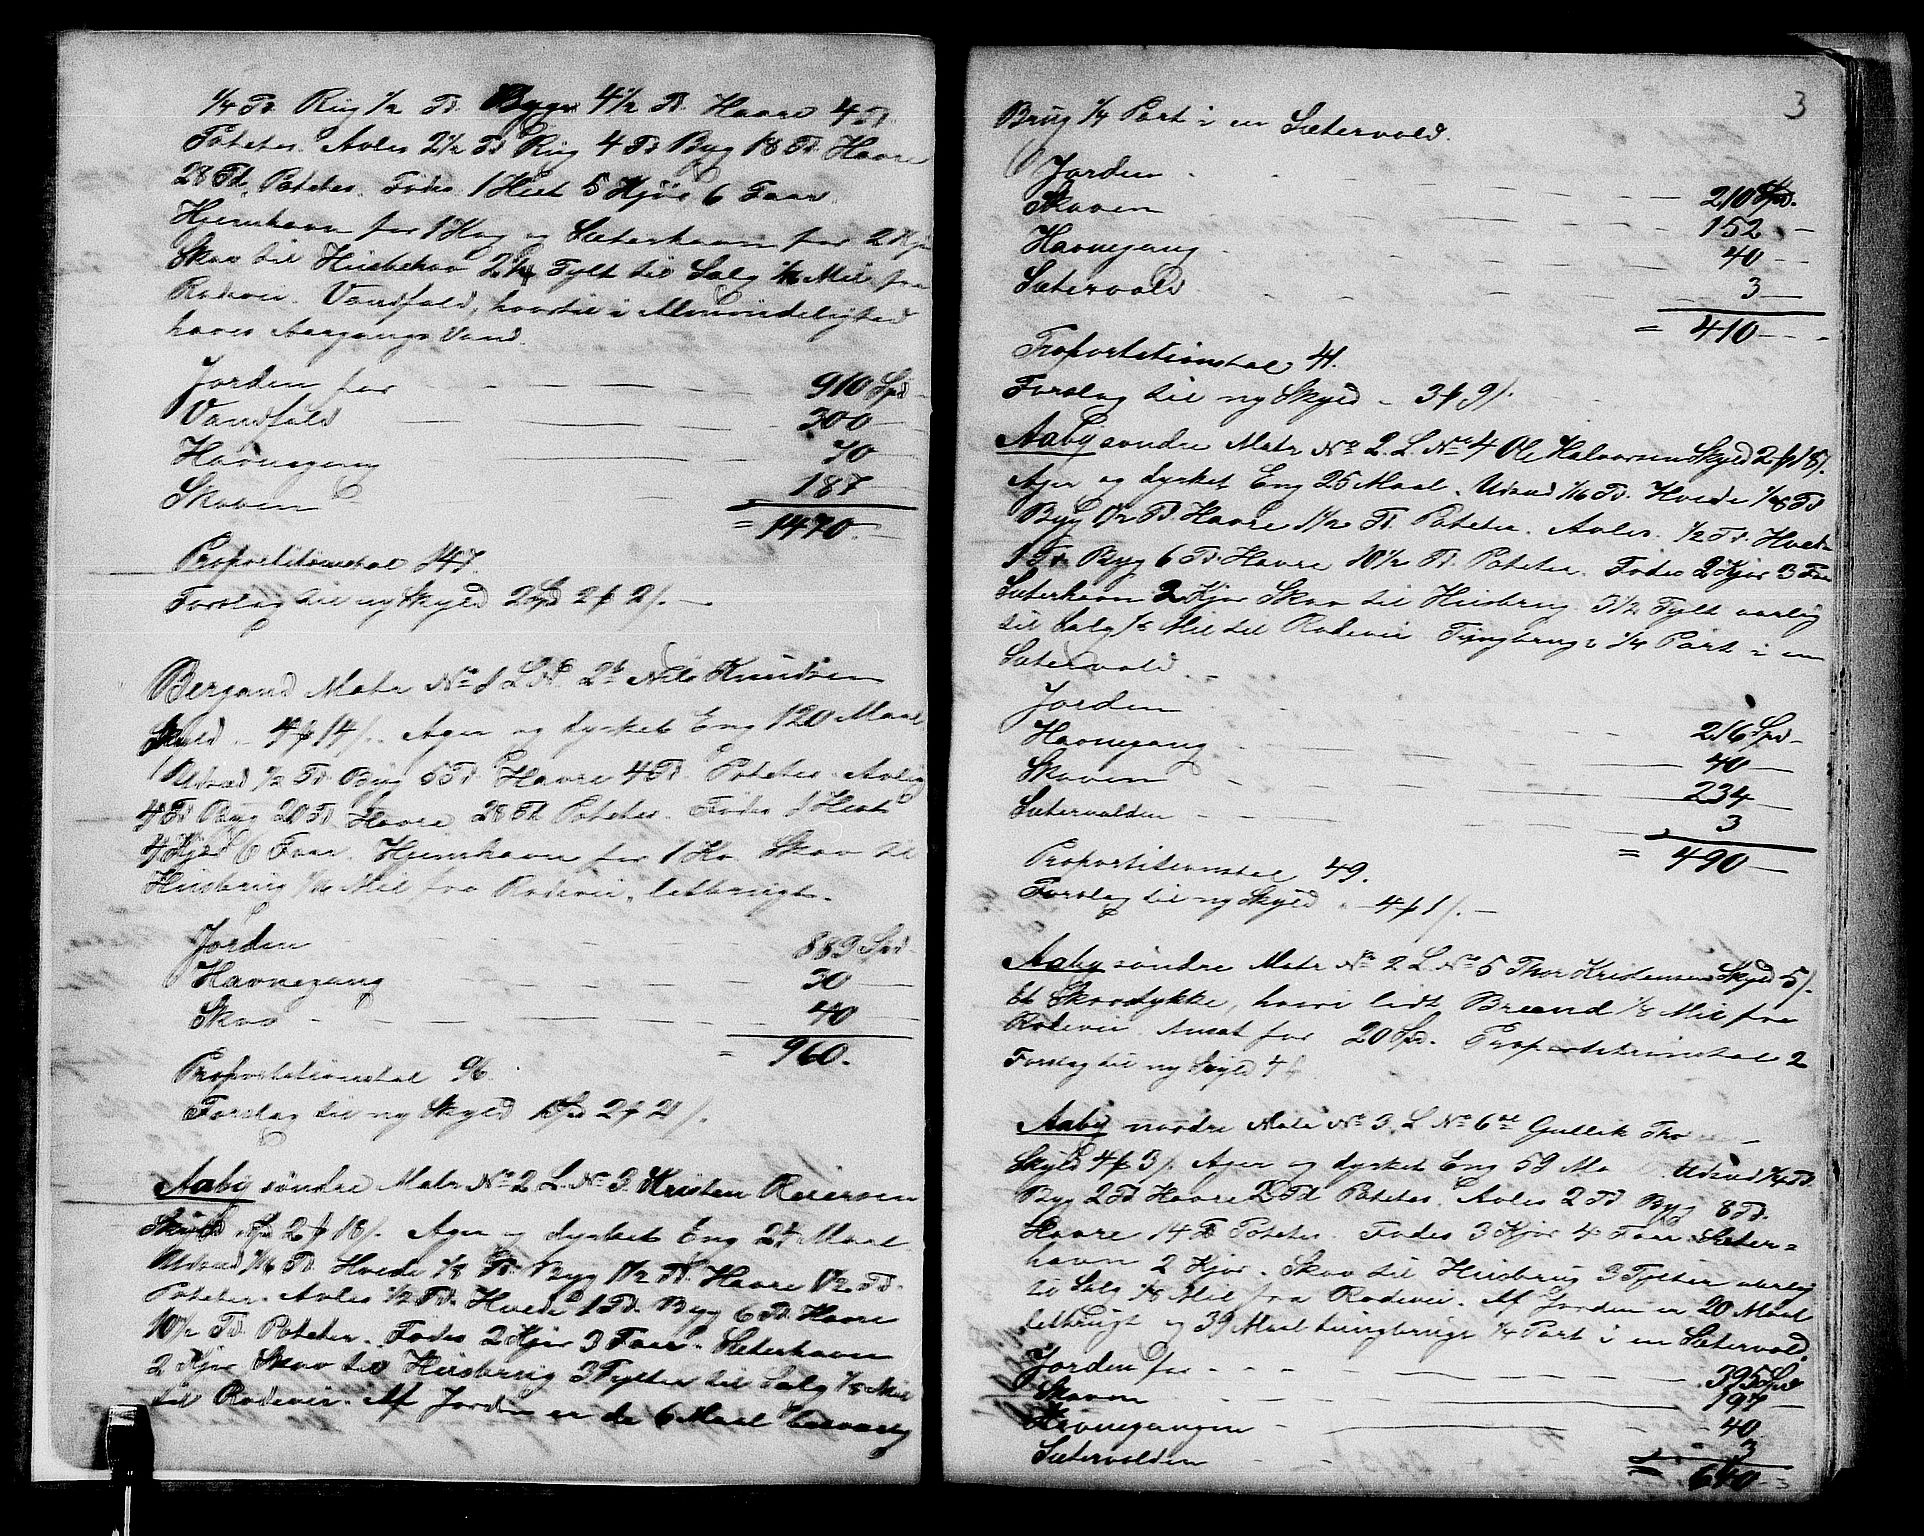 1/4 Td Rug 1/2 Td. Byg 4 1/2 Td. Havre 4 Td
Poteter. Avles 2 1/2 Td Rug 4 Td Byg 18 Td Havre
28 Td. Poteter. Fødes 1 Hest 5 Kjør 6 Faar.
Hjemhavn for 1 Ko og Sæterhavn for 2 Kjør
Skov til Husbehov 2 1/2 Tylt til Salg Mil fra
Rodevei. Vandfald, hvortil i Almindelighed
haves Aargangs Vand.
Jorden for 910 Spd
Vandfald 300
Havnegang 70
Skoven 187
= 1470
Proportitionstal 147.
Forslag til ny Skyld 2 Spd 2 f 2/.
Bergand Matr No 1 L No 2b Nils Knudsen
Skyld 4 f 14/. Ager og dyrket Eng 120 Maal
Udsæd 1/2 Td Byg 5 Td. Havre 4 Td. Poteter. Avling
4 Td Byg 20 Td. Havre 28 Td Poteter. Fødes 1 Hest
4 Kjør 6 Faar. Hjemhavn for 1 Ko. Skov til
Husbrug Mil fra Rodevei. letbrugt.
Jorden 889 Spd.
Havnegang 30
Skov 40
= 960.
Proportitionstal 96.
Forslag til ny Skyld 1 Spd 2 f 21/.
Aaby søndre Matr No 2 L. No 3. Kristen Reiersen
Skyld 2 f 18/. Ager og dyrket Eng 24 Maal
Udsæd 1/16 Td. Hvede 1/8 Td. Byg 1 1/2 Td. Havre 1 1/2 Td.
Poteter. Avles 1/2 Td. Hvede 1 Td. Byg 6 Td Havre
10 1/2 Td Poteter. Fødes 2 Kjør 3 Faar. Sæterhavn
2 Kjør Skov til Husbrug 3 Tylter til Salg 1/8 Mil
til Rodevei. Af Jorden er de 6 Maal
3
Brug 1/4 Part i en Sætervold.
Jorden 210 Spd.
Skoven 152
Havnegang 40
Sætervold 3
= 410
Proportitionstal 41.
Forslag til ny Skyld 3 f 9/.
Aaby søndre Matr No 2. L. No 4 Ole Halvorsen Skyld 2 f 18/.
Ager og dyrket Eng 25 Maal. Udsæd 1/16 Td. Hvede 1/8 Td
Byg 1 1/2 Td. Havre 1 1/2 Td. Poteter. Avles. 1/2 Td. Hvede
1 Td Byg 6 Td. Havre 10 1/2 Td. Poteter. Fødes 2 Kjør 3 Faar
Sæterhavn 2 Kjør Skov til Husbrug. Tylt aarlig
til Salg Mil til Rodevei Tungbrugt 1/4 Part i en
Sætervold.
Jorden 216 Spd
Havnegang 40
Skoven 234
Sætervolden 3
= 490
Proportitionstal 49.
Forslag til ny Skyld 4 f 1/.
Aaby søndre Matr No 2 L. No 5 Thor Kristensen Skyld 5/.
Et Skovstykke, hvori lidt Brænd 1/8 Mil fra
Rodevei Ansat for 20 Spd. Proportitionstal 2
Forslag til ny Skyld 4
Aaby nordre Matr No 3. L No 6a Gullik
Skyld 4 f 3/. Ager og dyrket Eng 59 Ma Udsæd 1/4 Td.
Byg 2 Td Havre 2 Td Poteter. Avles 2 Td Byg 8 Td.
Havre 14 Td Poteter. Fødes 3 Kjør 4 Faar Sæter=
havn 2 Kjør. Skov til Husbrug 3 Tylter aarlig
til Salg 1/8 Mil fra Rodevei. Af Jorden er 20 Maal
letbrugt og 39 Maal tungbrugt 1/4 Part i en Sætervold.
Jorden for 395 Spd
Skoven 197
Havnegangen 40
Sætervolden 3
= 640